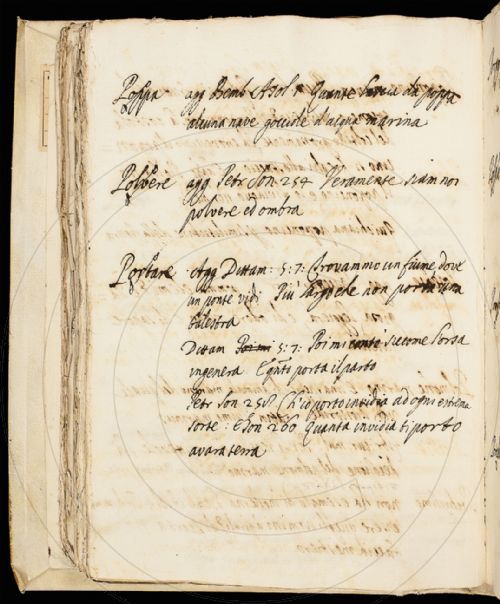 Poppa agg Bemb Asol 1 Quante suecia da poppa
alcuna nave gocciole d'acqua marina
Polvere agg Petr Son 254 Veramente siam noi
polvere ed ombra
Portare Agg Dittam: 5: 7: Trovammo un fiume dove
un ponte vidi Più largo che non porteria una
balestra
Dittam 5: 7: Poi mi contò siccome l'orsa
ingenera E quanto porta il parto
Petr Son 258 Ch'io porto invidia ad ogni estrema
sorte: e Son 260 Quanta invidia ti porto
avara terra